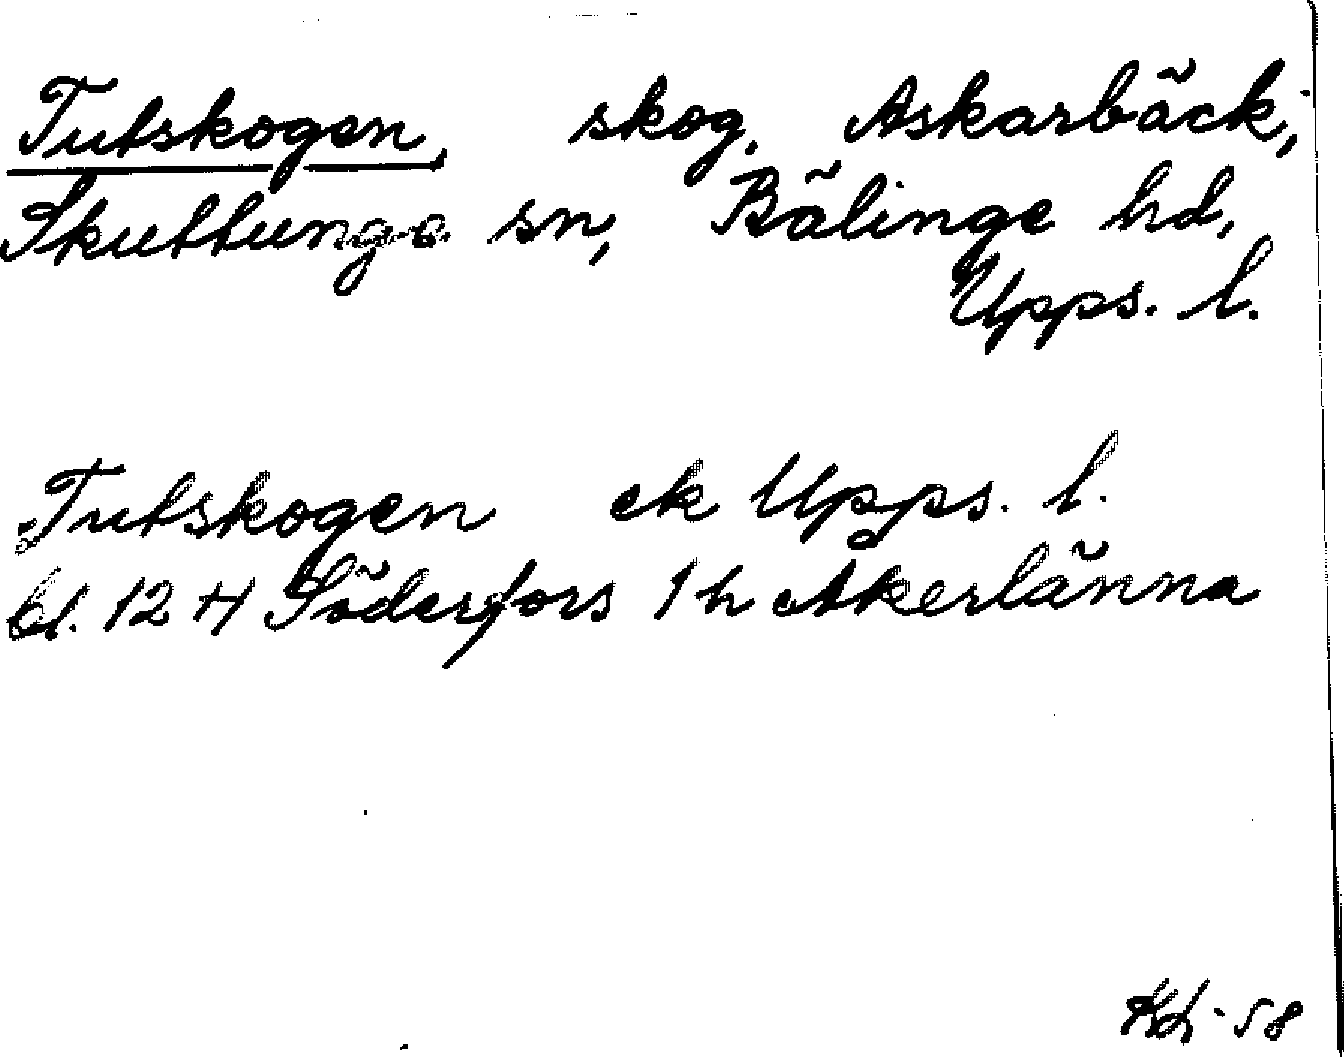 Tutskogen, skog, Askarbäck,
Skuttunge sn, Bälinge hd,
Upps. l.
Tutskogen ek Upps. l.
bl. 12 H Söderfors 1 h Åkerlänna
-58